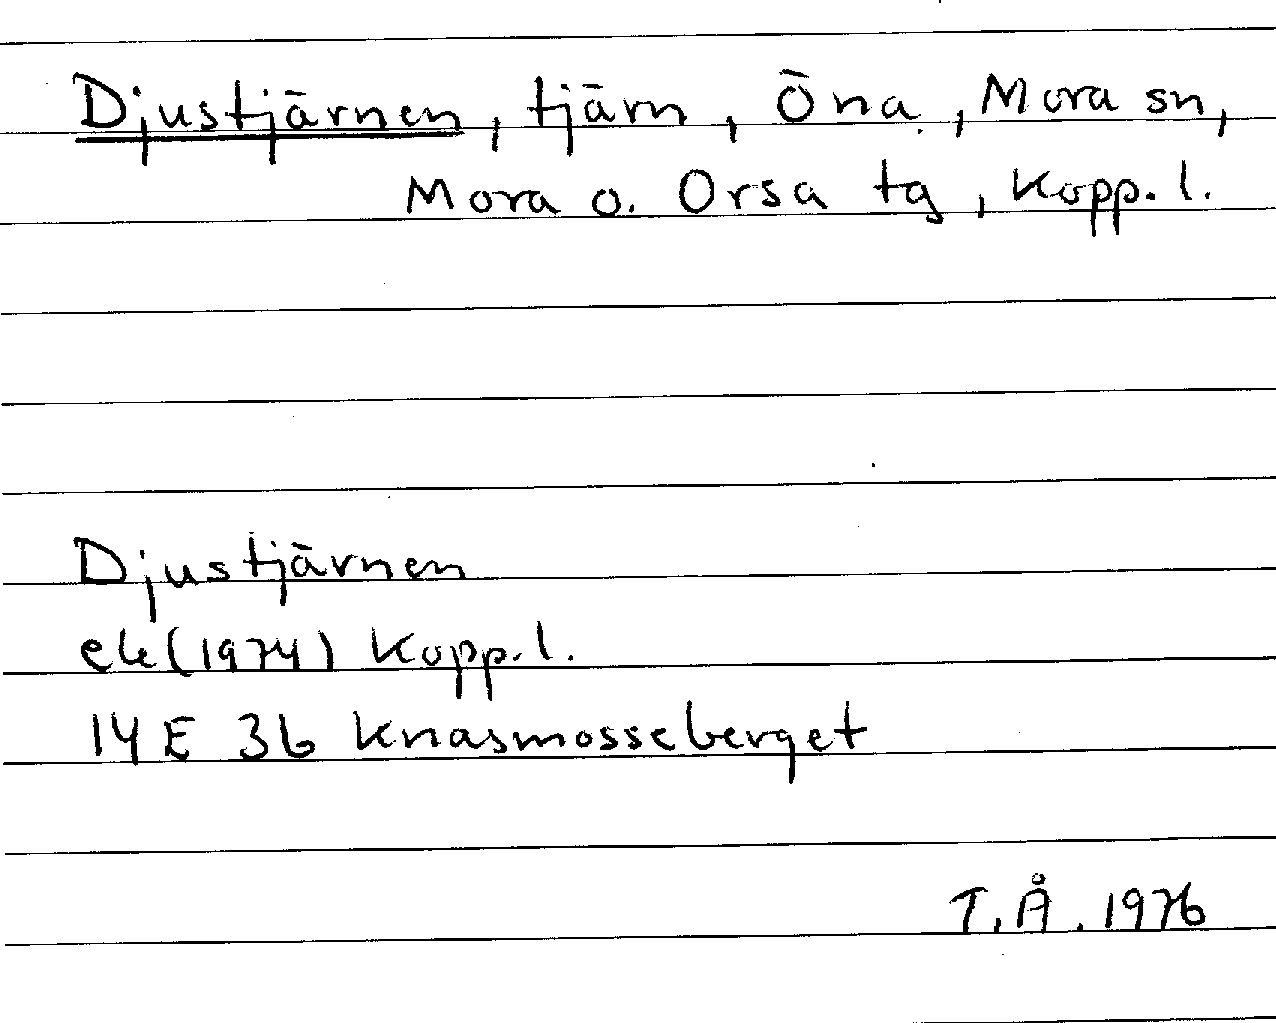 Djustjärnen, tjärn, Öna, Mora sn,
Mora o. Orsa tg, Kopp. l.
Djustjärnen
ek (1974) Kopp. l.
14 E 3b Knasmosseberget
T.Å. 1976